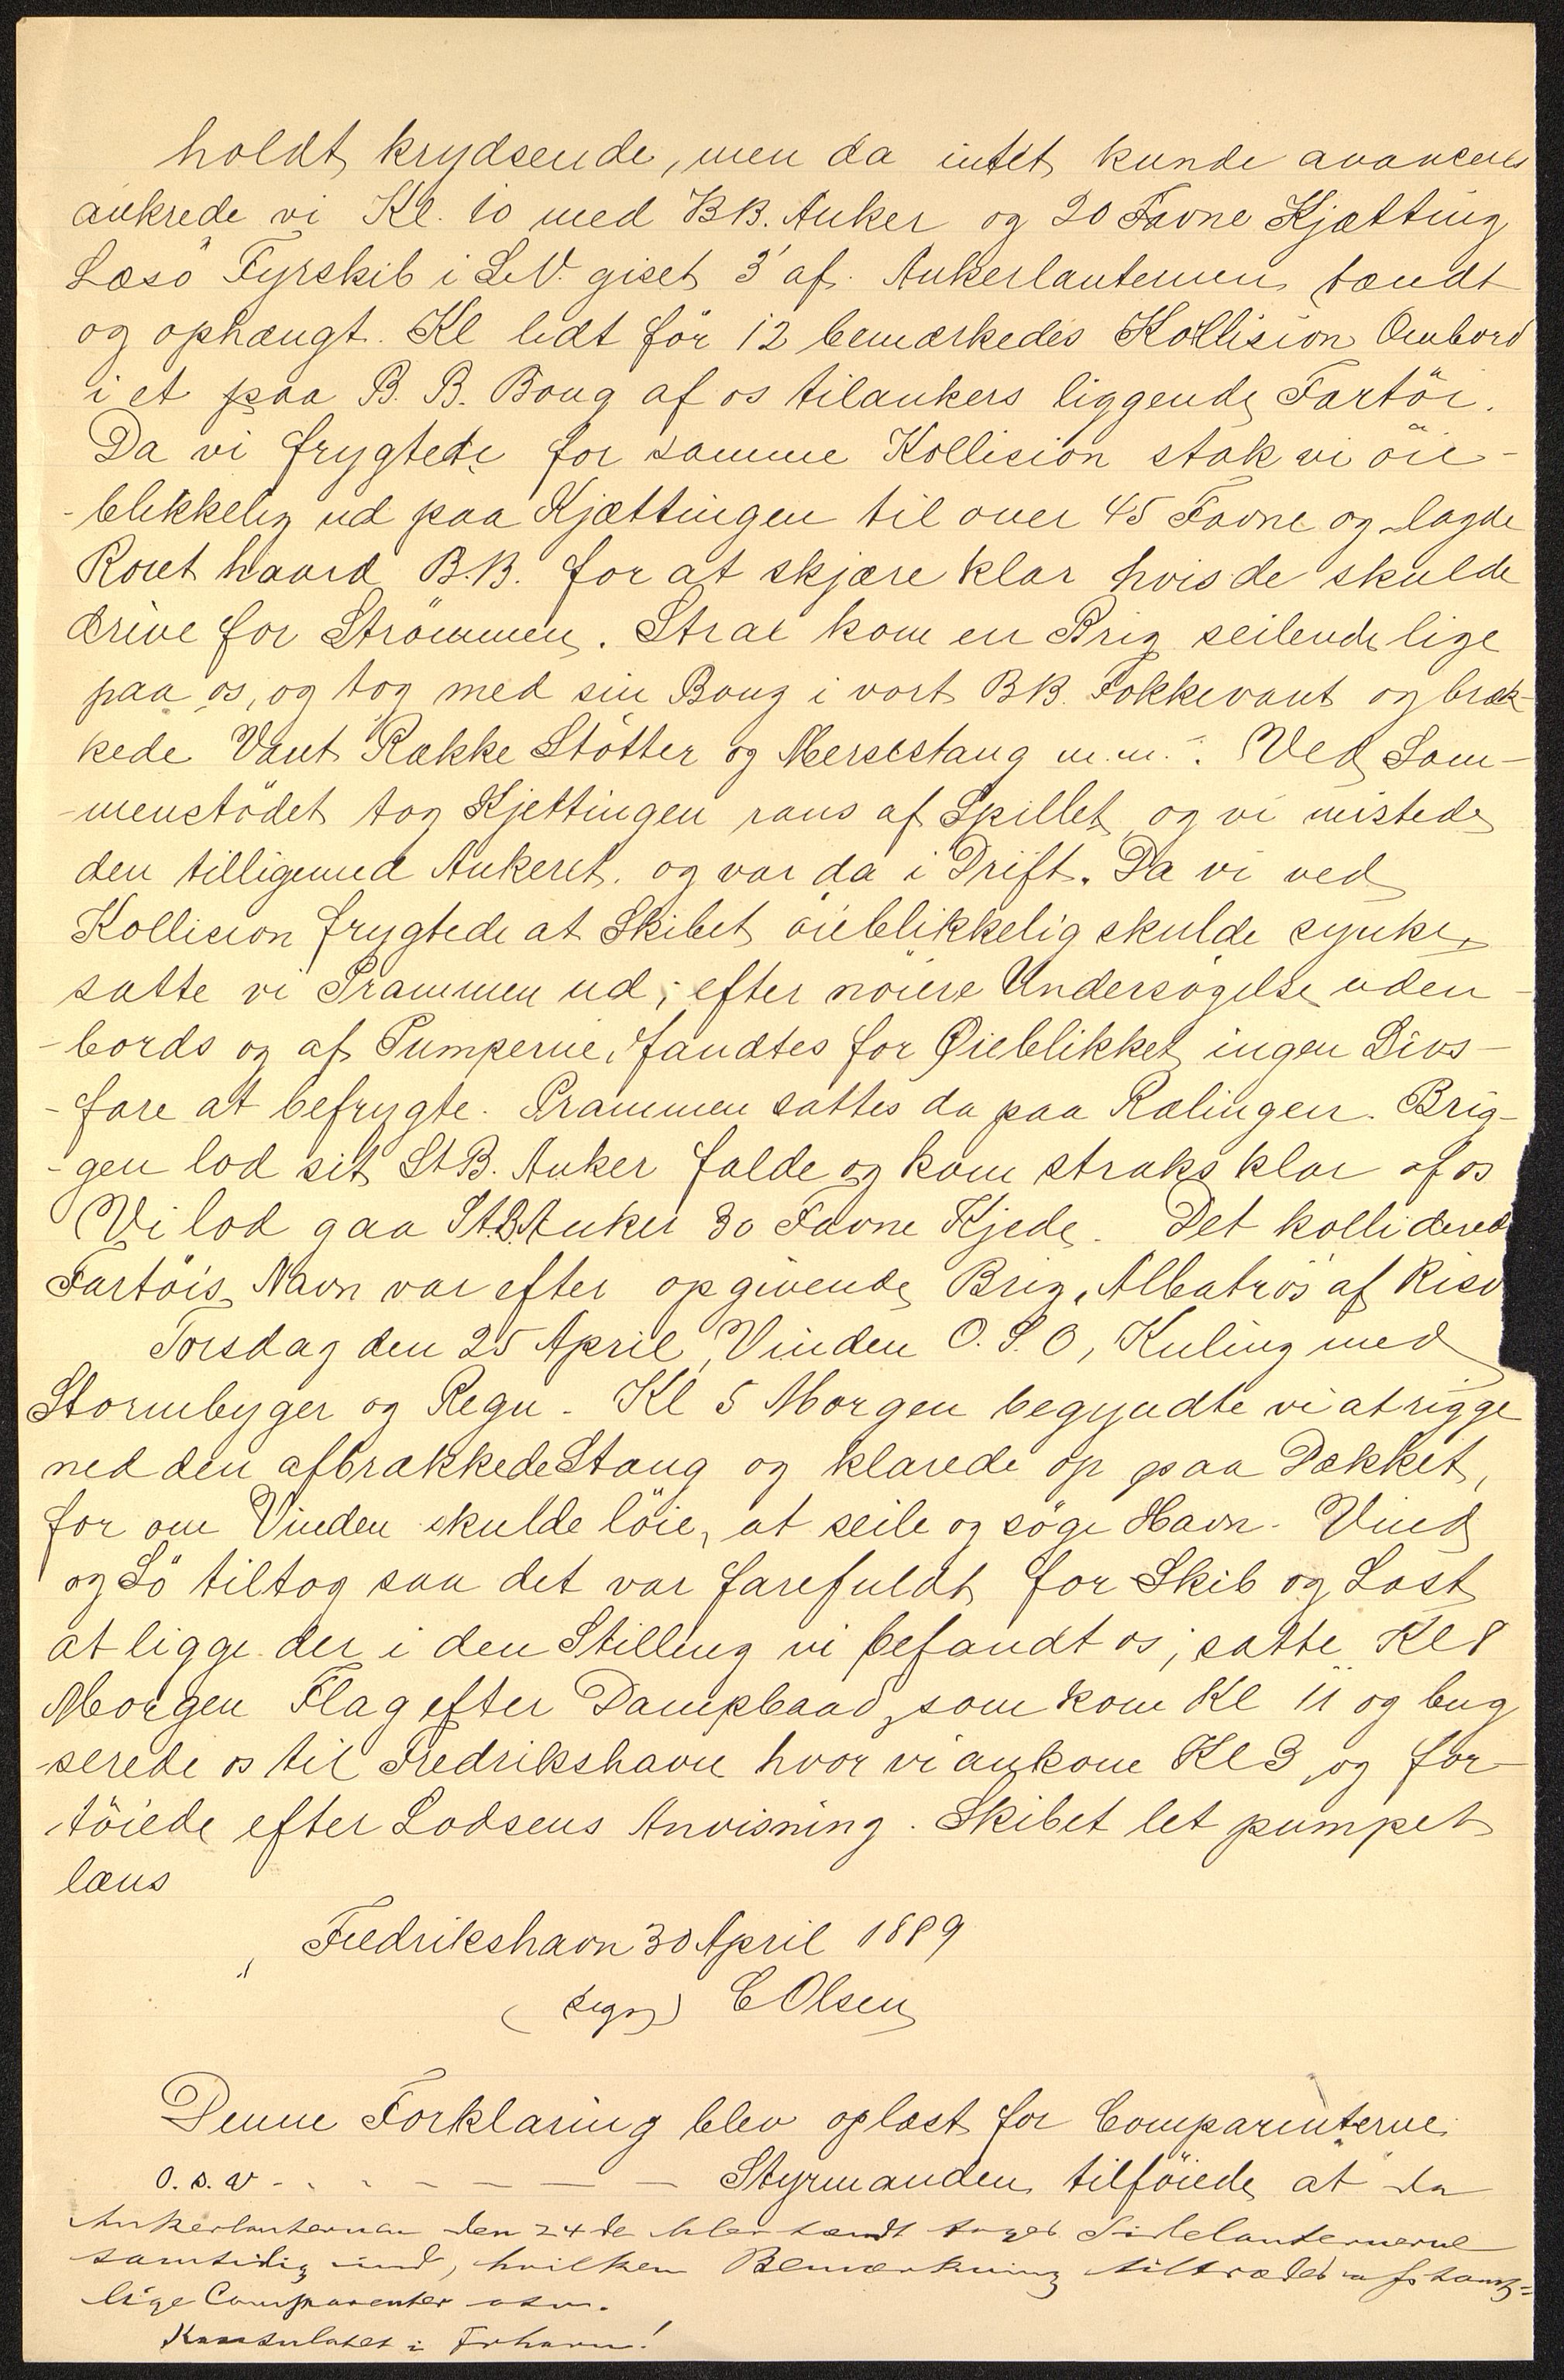 holdt krydsende, men da intet kunde avanceres
ankrede vi Kl. 10 med BB. Anker og 20 Favne Kjætting
Læsö Fyrskib i S.V. giset 3' af. Ankerlanternen tændt
og ophængt. Kl lidt för 12 bemærkedes Kollision Ombord
i et paa B. B. Boug af os tilankers liggende Fartöi.
Da vi frygtede for samme Kollision stak vi öie-
-blikkelig ud paa Kjættingen til over 45 Favne og lagde
Roret haard B.B. for at skjære klar hvis de skulde
drive for Strömmen. Strax kom en Brig seilende lige
paa os, og tog med sin Boug i vort BB. Fokkevant og bræk-
kede Vant Række Stötter og Mersestang m.m. Ved Sam-
-menstödet tog Kjettingen rans af Spillet og vi mistede
den tilligemed Ankeret. og var da i Drift. Da vi ved
Kollision frygtede at Skibet öieblikkelig skulde synke,
satte vi Prammen ud; efter nöiere Undersögelse uden-
-bords og af Pumperne, fandtes for Øieblikket ingen Livs-
-fare at befrygte. Prammen sattes da paa Rælingen. Brig-
-gen lod sit StB. Anker falde og kom straks klar af os
Vi lod gaa St.B. Anker 30 Favne Kjede. Det kolliderede
Fartöis Navn var efter opgivende Brig, Albatros af Risö
Torsdag den 25 April, Vinden O.S.O, Kuling med
Stormbyger og Regn. Kl 5 Morgen begyndte vi at rigge
ned den afbrækkede Stang og klarede op paa Dækket,
for om Vinden skulde löie, at seile og söge Havn. Vind
og Sö tiltog saa det var farefuldt for Skib og Last
at ligge der i den Stilling vi befandt os; satte Kl 8
Morgen Flag efter Dampbaad, som kom Kl 11 og bug
-serede os til Fredrikshavn hvor vi ankom Kl 3, og for-
töiede efter Lodsens Anvisning. Skibet let pumpet
læns
Fredrikshavn 30 April 1889
(sign) C Olsen
Denne Forklaring blev oplæst for Comparenterne
o.s.v - - - - - - - Styrmanden tilföiede at da
Ankerlanternen den 24de blev tændt toges Sidelanternerne
samtidig ind, hvilken Bemærkning tiltrædes af samt=
lige Comparenter osv.
Konsulatet i Frhavn!